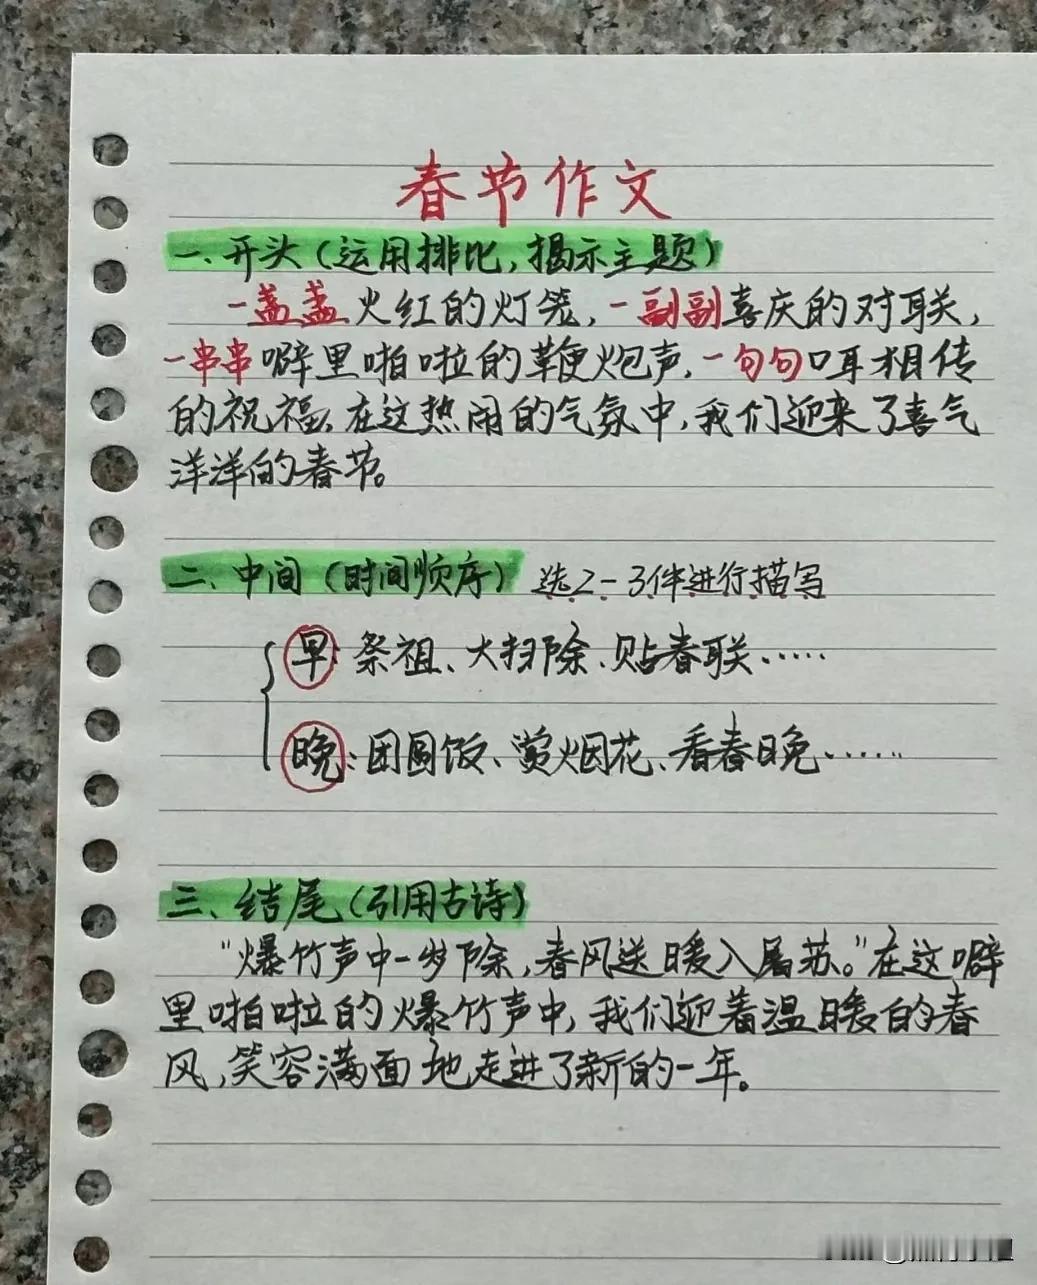 春节作文
一、开头(运用排比,揭示主题)
一盏盏火红的灯笼,一副副喜庆的对联,
一串串噼里啪啦的鞭炮声,一句句口耳相传
的祝福,在这热闹的气氛中,我们迎来了喜气
洋洋的春节。
二、中间(时间顺序) 选2-3件进行描写
早:祭祖、大扫除、贴春联……
晚:团圆饭、赏烟花、看春晚……
三、结尾(引用古诗)
“爆竹声中一岁除,春风送暖入屠苏。”在这噼
里啪啦的爆竹声中,我们迎着温暖的春
风,笑容满面地走进了新的一年。